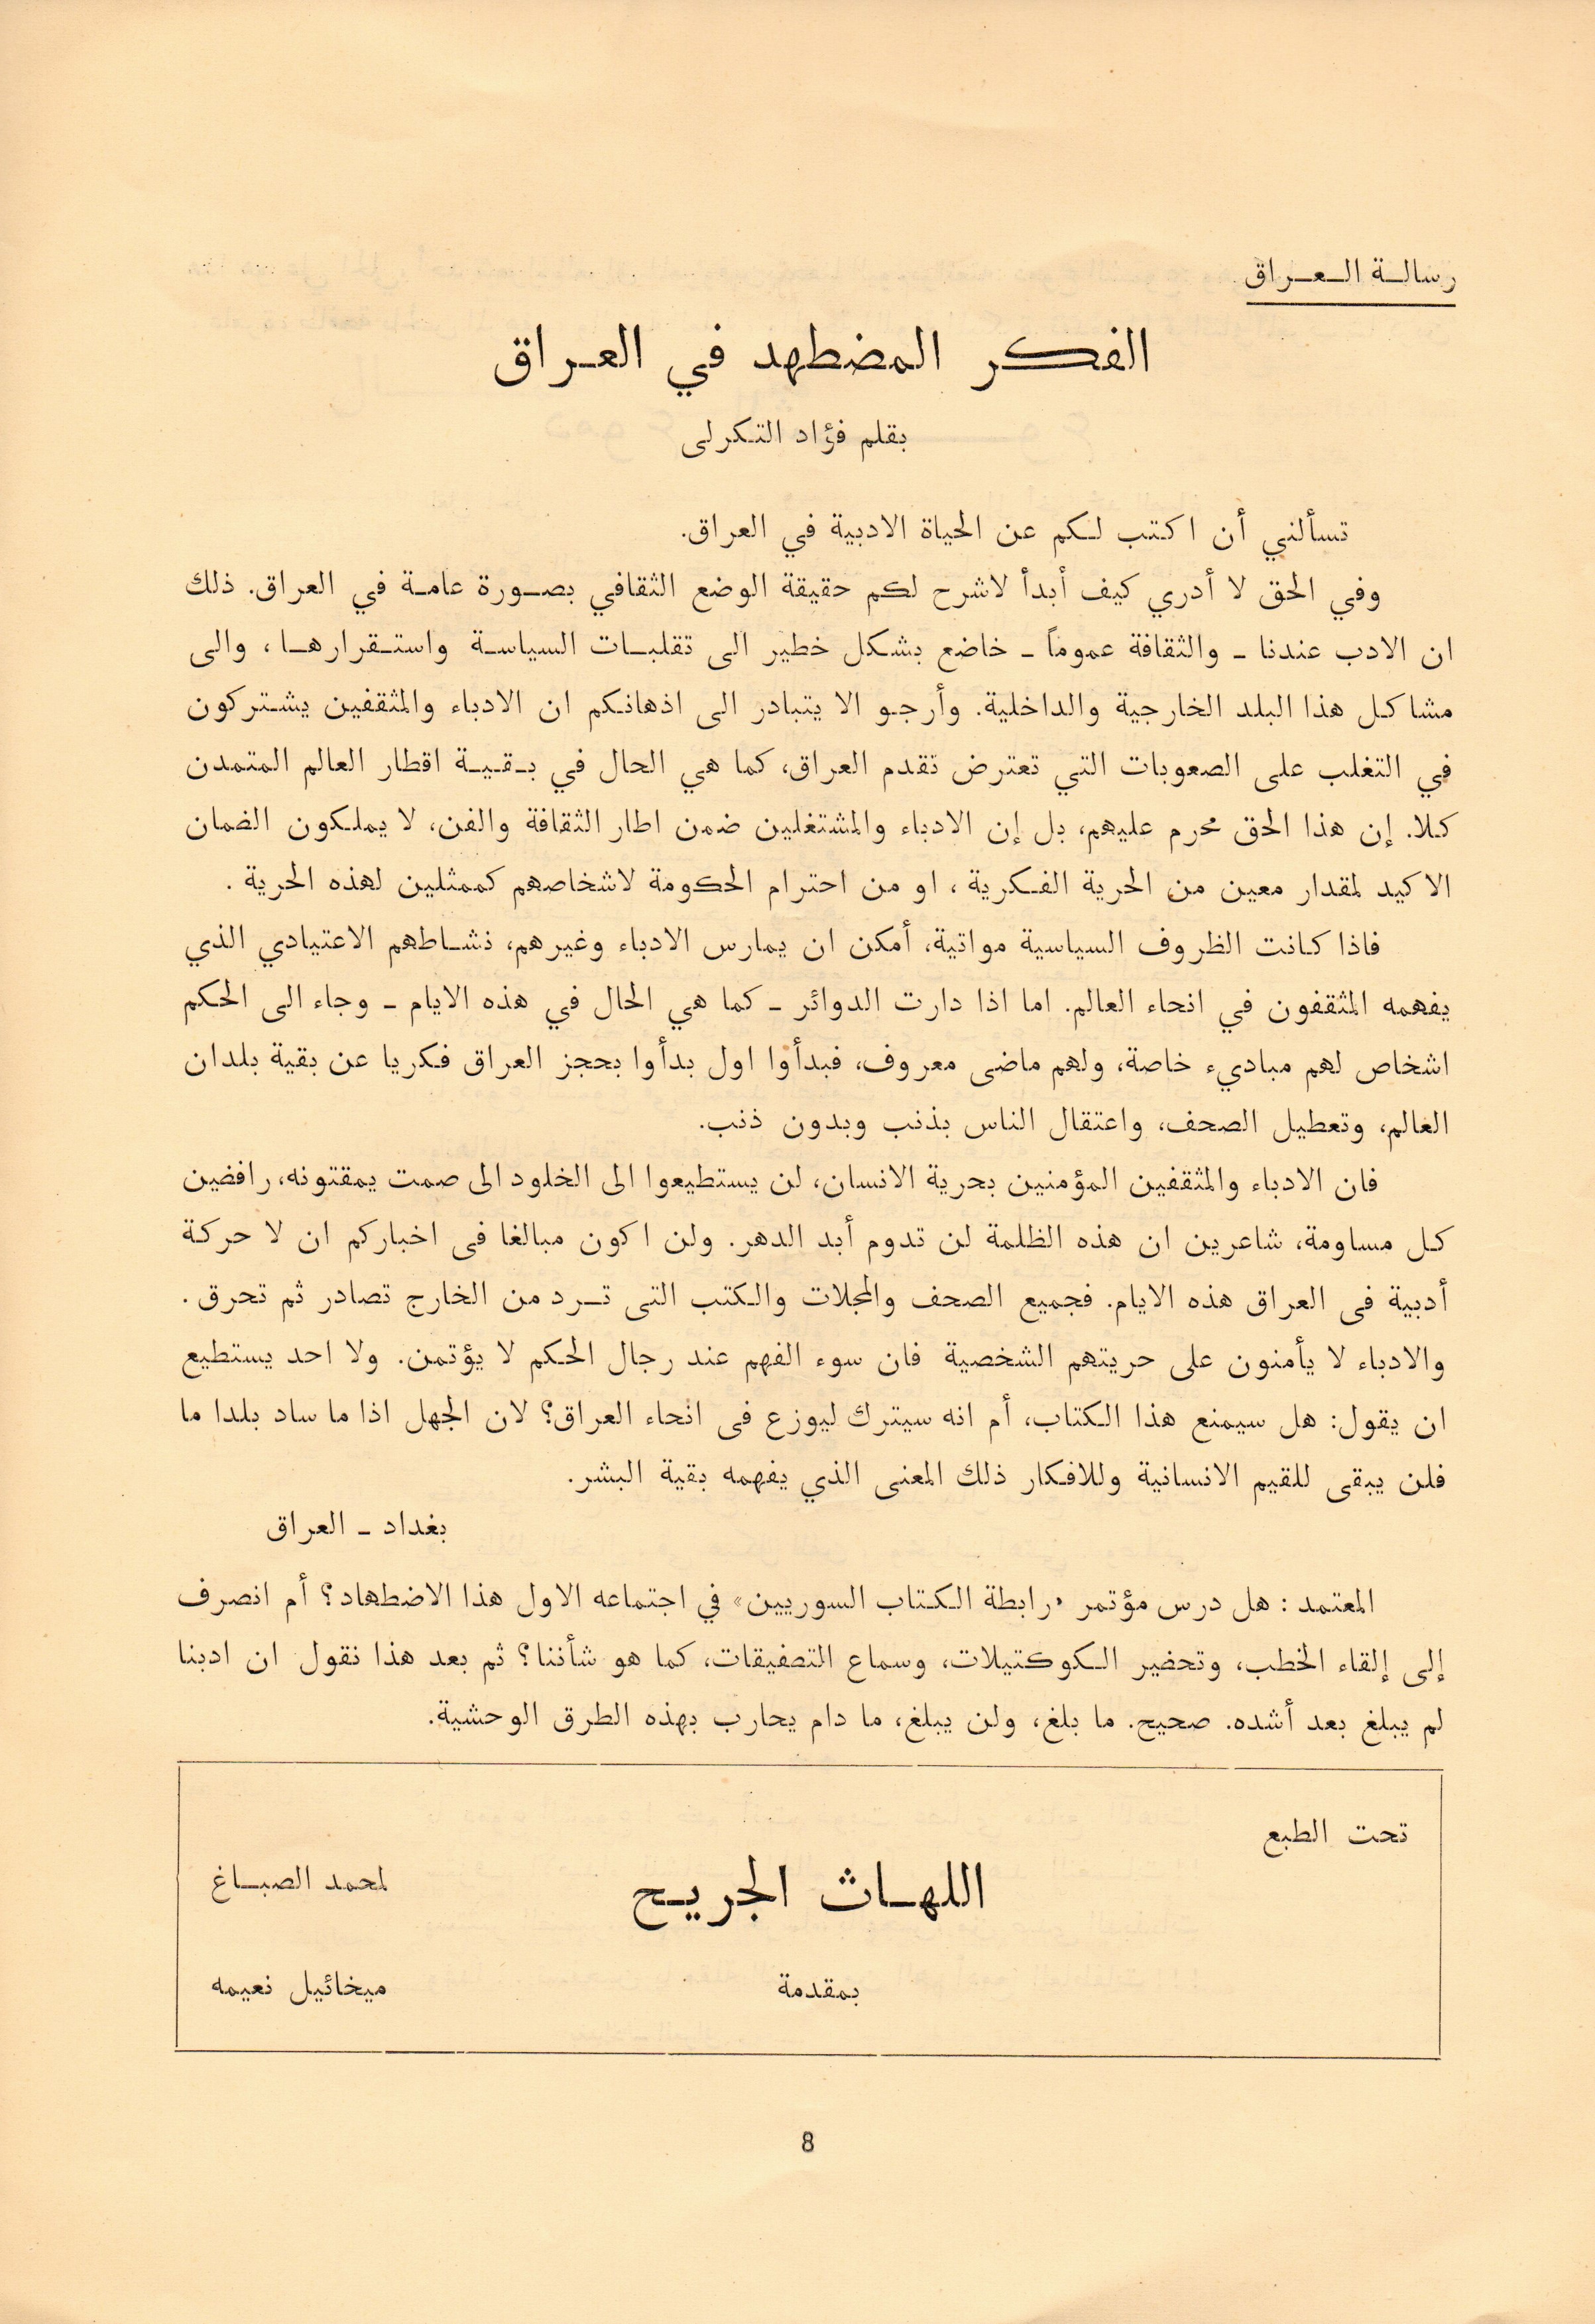 رسالة العراق
الفكر المضطهد في العراق
بقلم فؤاد التكرلى
تسألني أن اكتب لكم عن الحياة الادبية في العراق.
وفي الحق لا أدري كيف أبدأ لاشرح لكم حقيقة الوضع الثقافي بصورة عامة في العراق. ذلك
ان الادب عندنا - والثقافة عموماً - خاضع بشكل خطير الى تقلبات السياسة واستقرارها ، والى
مشاكل هذا البلد الخارجية والداخلية. وأرجو الا يتبادر الى اذهانكم ان الادباء والمثقفين يشتركون
في التغلب على الصعوبات التي تعترض تقدم العراق، كما هي الحال في بقية اقطار العالم المتمدن
كلا. إن هذا الحق محرم عليهم، بل إن الادباء والمشتغلين ضمن اطار الثقافة والفن، لا يملكون الضمان
الاكيد لمقدار معين من الحرية الفكرية ، او من احترام الحكومة لاشخاصهم كممثلين لهذه الحرية .
فاذا كانت الظروف السياسية مواتية، أمكن ان يمارس الادباء وغيرهم، نشاطهم الاعتيادي الذي
يفهمه المثقفون في انحاء العالم. اما اذا دارت الدوائر - كما هي الحال في هذه الايام - وجاء الى الحكم
اشخاص لهم مباديء خاصة، ولهم ماضى معروف، فبدأوا اول بدأوا بحجز العراق فكريا عن بقية بلدان
العالم، وتعطيل الصحف، واعتقال الناس بذنب وبدون ذنب.
فان الادباء والمثقفين المؤمنين بحرية الانسان، لن يستطيعوا الى الخلود الى صمت يمقتونه، رافضين
كل مساومة، شاعرين ان هذه الظلمة لن تدوم أبد الدهر. ولن اكون مبالغا فى اخباركم ان لا حركة
أدبية فى العراق هذه الايام. فجميع الصحف والمجلات والكتب التى ترد من الخارج تصادر ثم تحرق .
والادباء لا يأمنون على حريتهم الشخصية فان سوء الفهم عند رجال الحكم لا يؤتمن. ولا احد يستطيع
ان يقول: هل سيمنع هذا الكتاب، أم انه سيترك ليوزع فى انحاء العراق؟ لان الجهل اذا ما ساد بلدا ما
فلن يبقى للقيم الانسانية وللافكار ذلك المعنى الذي يفهمه بقية البشر.
بغداد - العراق
المعتمد : هل درس مؤتمر «رابطة الكتاب السوريين» في اجتماعه الاول هذا الاضطهاد؟ أم انصرف
إلى إلقاء الخطب، وتحضير الكوكتيلات، وسماع التصفيقات، كما هو شأننا؟ ثم بعد هذا نقول ان ادبنا
لم يبلغ بعد أشده. صحيح. ما بلغ، ولن يبلغ، ما دام يحارب بهذه الطرق الوحشية.
تحت الطبع
اللهاث الجريح
لمحمد الصباغ
بمقدمة
ميخائيل نعيمه
8